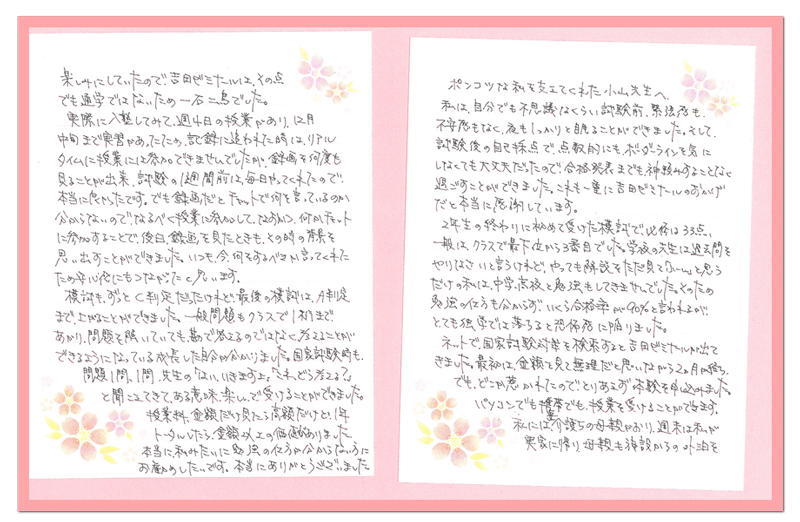 ポンコツな私を支えてくれた小山先生へ
私は、自分でも不思議なくらい試験前、緊張感も、
不安感もなく、夜もしっかりと眠ることができました。そして、
試験後の自己採点で、点数的にも、ボーダーラインを気に
しなくても大丈夫だったので、合格発表までも、神頼みすることなく
過ごすことができました。これも一重に吉田ゼミナールのおかげ
だと本当に感謝しています。
2年生の終わりに初めて受けた模試で必修は33点、
一般は、クラスで最下位から3番目でした。学校の先生は過去問を
やりなさいと言うけれど、やっても解説をただ見てふ〜んと思う
だけの私は、中学、高校と勉強もしてきませんでした。そのため
勉強の仕方も分からず、いくら合格率が90%と言われるが、
とても独学では落ちると恐怖感に陥りました。
ネットで、国家試験対策を検索すると吉田ゼミナールが出て
きました。最初は、金額を見て無理だと思いながら2ヵ月間
でも、どこか惹かれたのでとりあえず体験を申し込みました。
パソコンでも携帯でも、授業を受けることができます。
私には、要介護5の母親がおり、週末は私が
実家に帰り、母親も施設からの外泊を
楽しみにしていたので、吉田ゼミナールは、その点
でも通学ではないため一石二鳥でした。
実際に入塾してみて、週4日の授業があり、12月
中旬まで実習があったため、記録に追われた時は、リアル
タイムに授業には参加できませんでしたが、録画を何度も
見ることが出来、試験の1週間前は、毎日やってくれたので、
本当に良かったです。でも録画だとチャットで何を言っているのか
分からないのでなるべく授業に参加して、なおかつ、何かチャット
に参加することで、後日、録画を見たときも、その時の背景を
思い出すことができました。いつも、今、何をするべきか言ってくれた
ため安心感にもつながったと思います。
模試も、ずっとC判定だったけれど、最後の模試は、A判定
まで上がることができました。一般問題もクラスで1桁まで
あがり、問題を解いていても、勘で答えるのではなく、考えることが
できるようになっている成長した自分が分かりました。国家試験時も、
問題1問、1問、先生の「はい、いきますよ。」「これ、どう考える?」
と聞こえてきて、ある意味、楽しんで受けることができました。
授業料、金額だけ見たら高額だけど、1年
トータルしたら、金額以上の価値がありました
本当に私みたいに勉強の仕方が分からない方に
お勧めしたいです。本当にありがとうございました